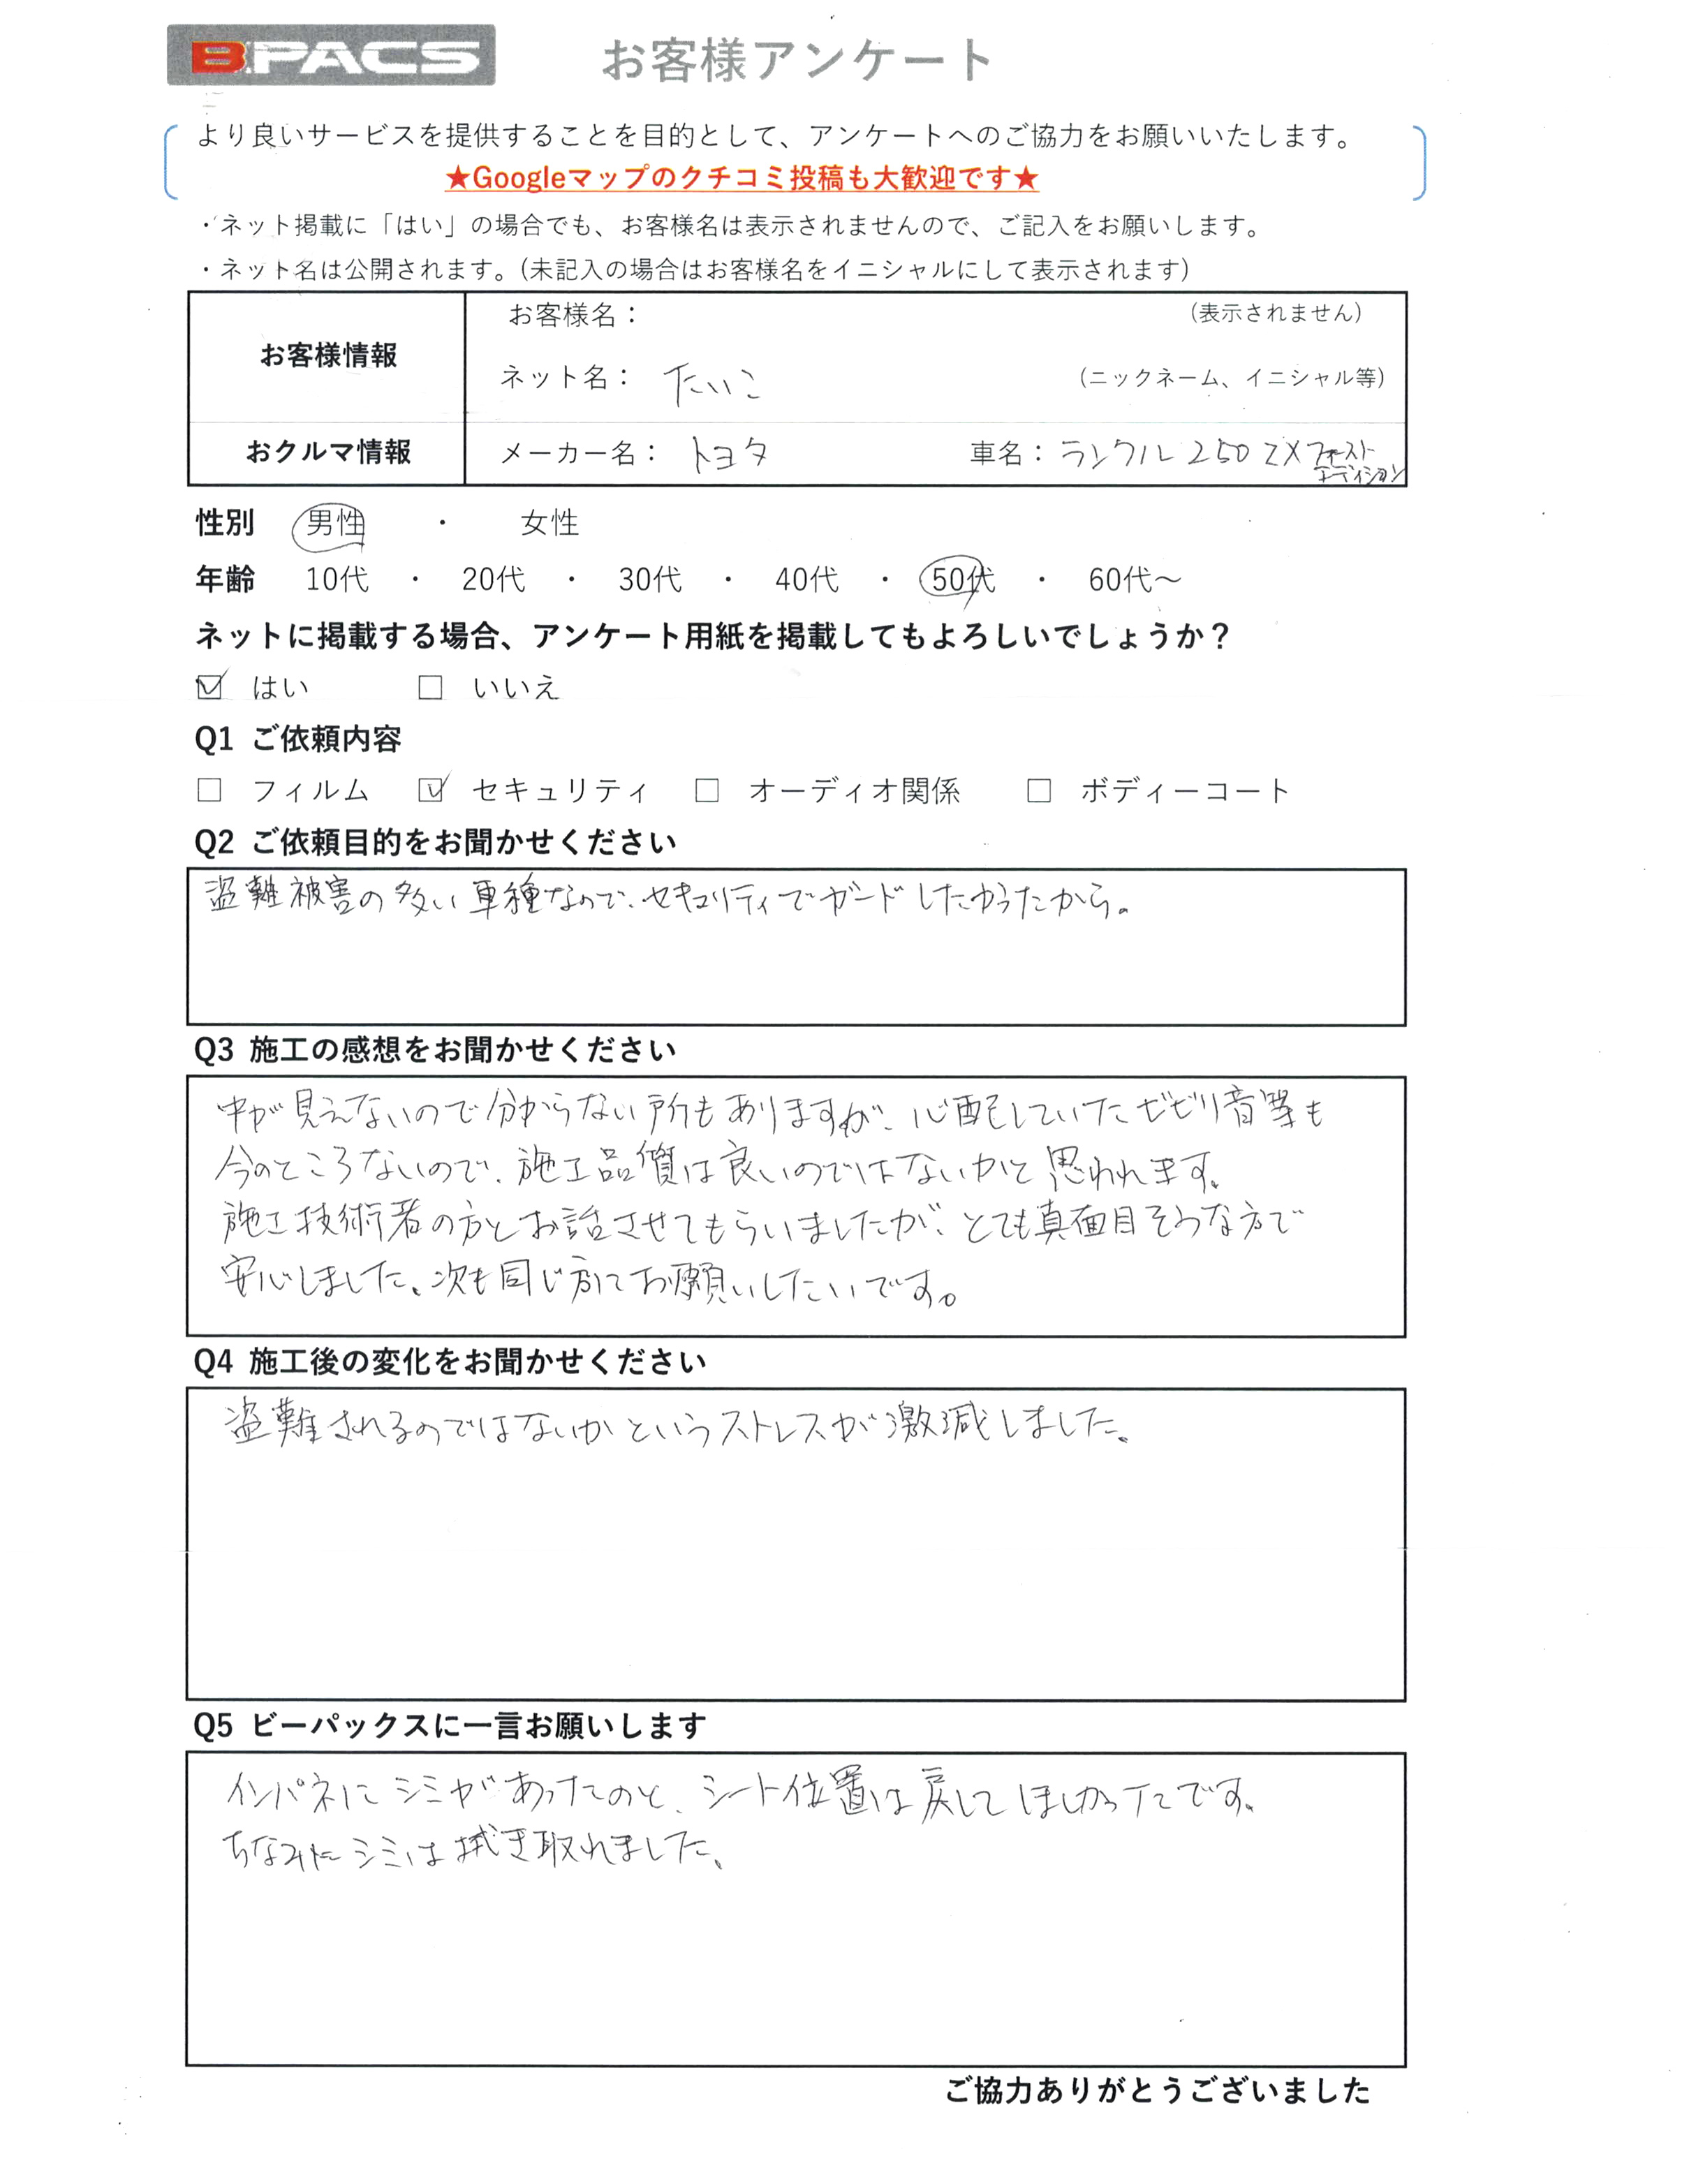 B.PACS お客様アンケート
より良いサービスを提供することを目的として、アンケートへのご協力をお願いいたします。
★Googleマップのクチコミ投稿も大歓迎です★
・ネット掲載に「はい」の場合でも、お客様名は表示されませんので、ご記入をお願いします。
・ネット名は公開されます。(未記入の場合はお客様名をイニシャルにして表示されます)
お客様情報
お客様名： (表示されません)
ネット名： たいこ (ニックネーム、イニシャル等)
おクルマ情報 メーカー名： トヨタ 車名：ランクル250 ZX ファースト
エディション
性別 男性 ・ 女性
年齢 10代 ・ 20代 ・ 30代 ・ 40代 ・ 50代 ・ 60代～
ネットに掲載する場合、アンケート用紙を掲載してもよろしいでしょうか？
☑ はい □ いいえ
Q1 ご依頼内容
□ フィルム ☑ セキュリティ □ オーディオ関係 □ ボディーコート
Q2 ご依頼目的をお聞かせください
盗難被害の多い車種なので、セキュリティでガードしたかったから。
Q3 施工の感想をお聞かせください
中が見えないので分からない所もありますが、心配していたビビリ音等も
今のところないので、施工品質は良いのではないかと思われます。
施工技術者の方とお話させてもらいましたが、とても真面目そうな方で
安心しました。次も同じ方にてお願いしたいです。
Q4 施工後の変化をお聞かせください
盗難されるのではないかというストレスが激減しました。
Q5 ビーパックスに一言お願いします
インパネにシミがあったのと、シート位置は戻してほしかったです。
ちなみにシミは拭き取れました。
ご協力ありがとうございました